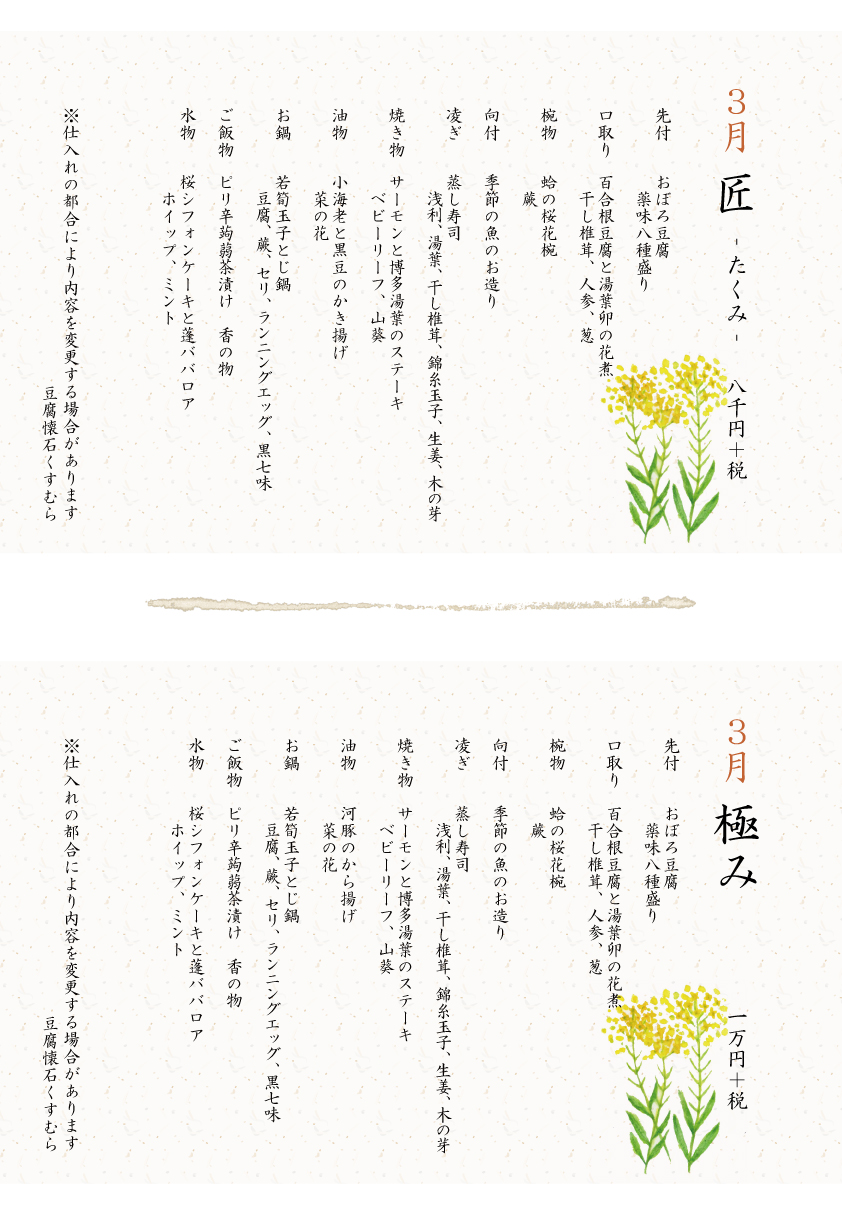 3月 匠 -たくみ- 八千円+税
先付 おぼろ豆腐
薬味八種盛り
口取り 百合根豆腐と湯葉卯の花煮
干し椎茸、人参、葱
椀物 蛤の桜花椀
蕨
向付 季節の魚のお造り
凌ぎ 蒸し寿司
浅利、湯葉、干し椎茸、錦糸玉子、生姜、木の芽
焼き物 サーモンと博多湯葉のステーキ
ベビーリーフ、山葵
油物 小海老と黒豆のかき揚げ
菜の花
お鍋 若筍玉子とじ鍋
豆腐、蕨、セリ、ランニングエッグ、黒七味
ご飯物 ピリ辛蒟蒻茶漬け 香の物
水物 桜シフォンケーキと蓬ババロア
ホイップ、ミント
※仕入れの都合により内容を変更する場合があります
豆腐懐石くすむら
3月 極み 一万円+税
先付 おぼろ豆腐
薬味八種盛り
口取り 百合根豆腐と湯葉卯の花煮
干し椎茸、人参、葱
椀物 蛤の桜花椀
蕨
向付 季節の魚のお造り
凌ぎ 蒸し寿司
浅利、湯葉、干し椎茸、錦糸玉子、生姜、木の芽
焼き物 サーモンと博多湯葉のステーキ
ベビーリーフ、山葵
油物 河豚のから揚げ
菜の花
お鍋 若筍玉子とじ鍋
豆腐、蕨、セリ、ランニングエッグ、黒七味
ご飯物 ピリ辛蒟蒻茶漬け 香の物
水物 桜シフォンケーキと蓬ババロア
ホイップ、ミント
※仕入れの都合により内容を変更する場合があります
豆腐懐石くすむら